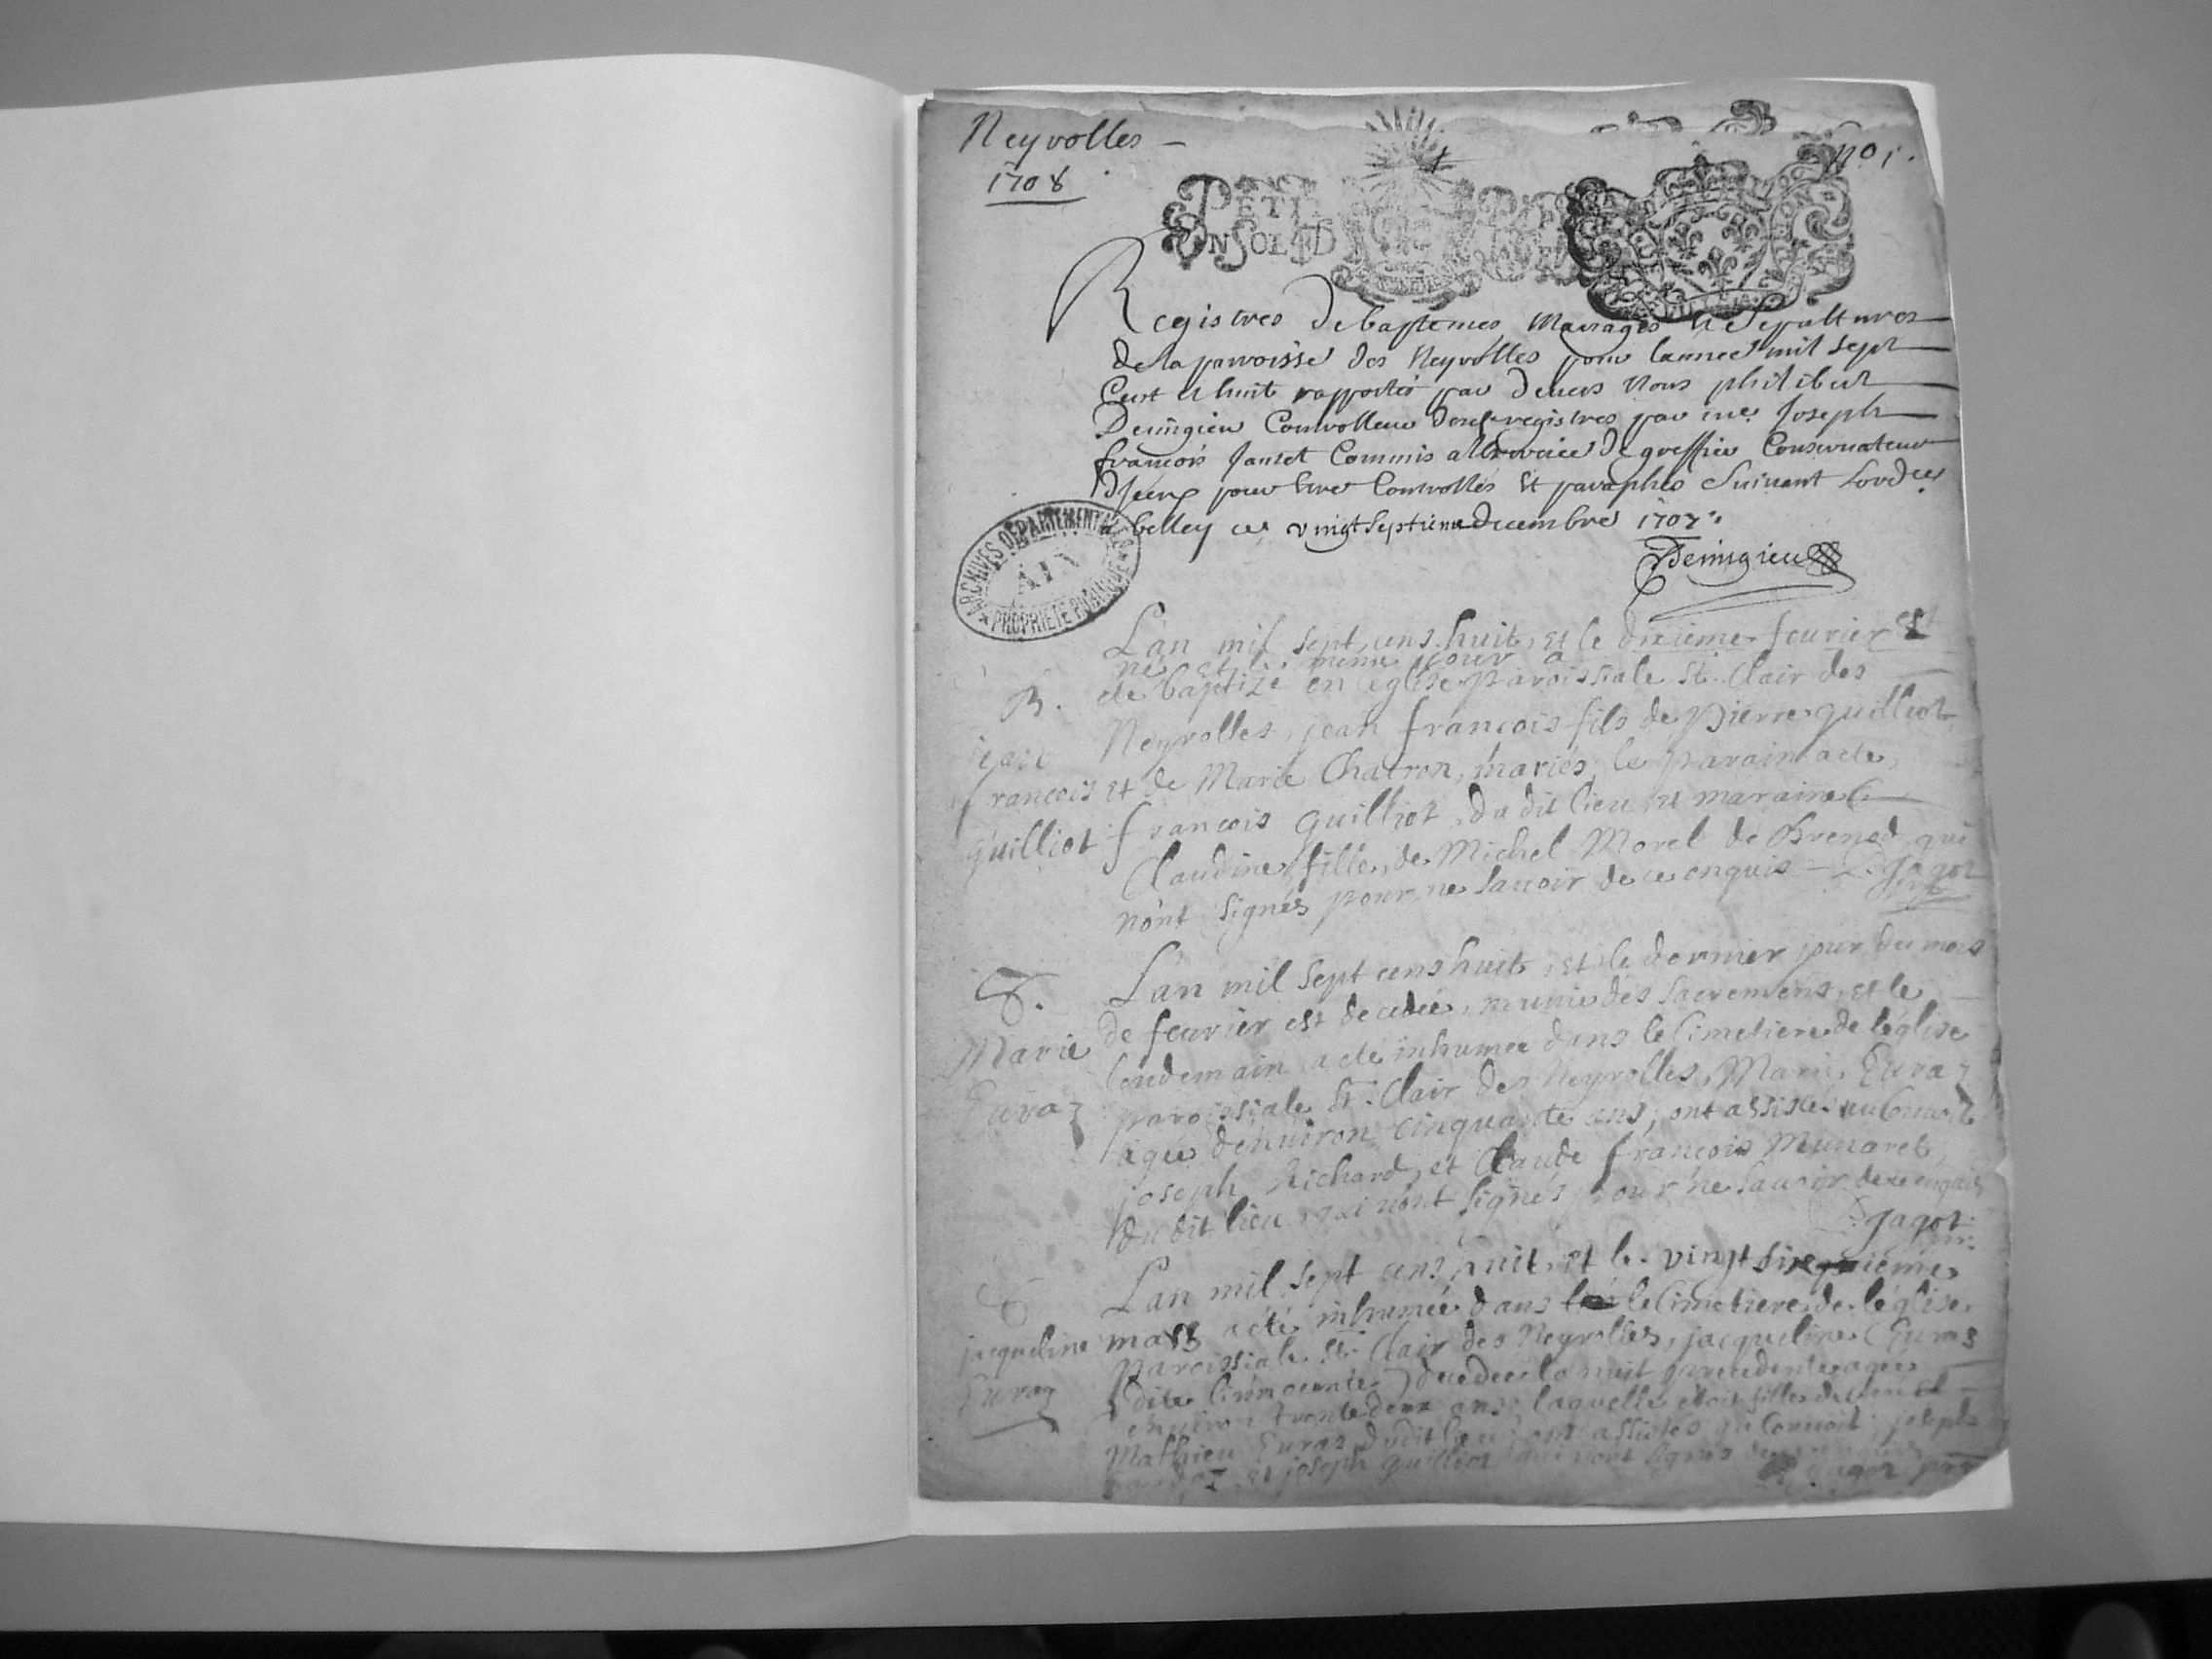 Neyrolles -
1708
no 1.
PETIT PAP
UN SOL
Registres de baptemes Mariages et Sepultures
de la parroisse des Neyrolles pour lannee mil sept
Cent et huit rapportés par devers Nous philibert
Demigieu Controlleur desd registres par me Joseph
françois Jantet Commis a lexercice de greffier Conservateur
Diceux pour Estre Controllés Et paraphés Suivant Lordre
a belley ce vingt Septieme decembre 1707.
Demigieu
ARCHIVES DEPARTEMENTALES
AIN
PROPRIETE PUBLIQUE
L'an mil sept cens huit, et le dixieme fevrier est
né et le même jour a
B. été baptizé en l'eglise paroissiale St. Clair des
jean Neyrolles, jean françois fils de Pierre guilliot
francois et de Marie Chatron, mariés, le parain a été
guilliot françois guilliot du dit lieu et maraine
Claudine fille de Michel Morel de Brenod qui
n'ont signés pour ne sauoir de ce enquis - Jagot
S. L'an mil sept cens huit, et le dernier jour du mois
Marie de feurier est decedée, munie des sacremens, et le
lendemain a eté inhumée dans le cimetiere de l'église
Euraz paroissiale St. Clair des Neyrolles, Marie Euraz
agée d'enuiron cinquante ans, ont assistés au Conuoit
joseph Richard, et Claude françois Munaret
du dit lieu qui n'ont signés pour ne sauoir de ce enquis
Jagot
L'an mil sept cens huit, et le vingt sixieme
jacqueline mars a été inhumée dans le cimetiere de l'église
paroissiale St. Clair des Neyrolles, jacqueline Euras
Euraz dite decedée la nuit precedente agée
enuiron trente deux ans, laquelle étoit fille de
Mathieu Euraz dudit lieu ont assistés au Conuoit joseph
et joseph guilliot qui n'ont signés
Jagot